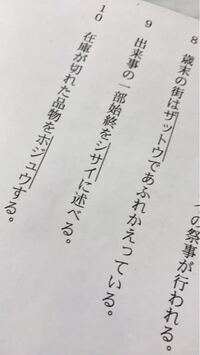 の祭事が行われる。
8 歳末の街はザットウであふれかえっている。
9 出来事の一部始終をシサイに述べる。
10 在庫が切れた品物をホジュウする。